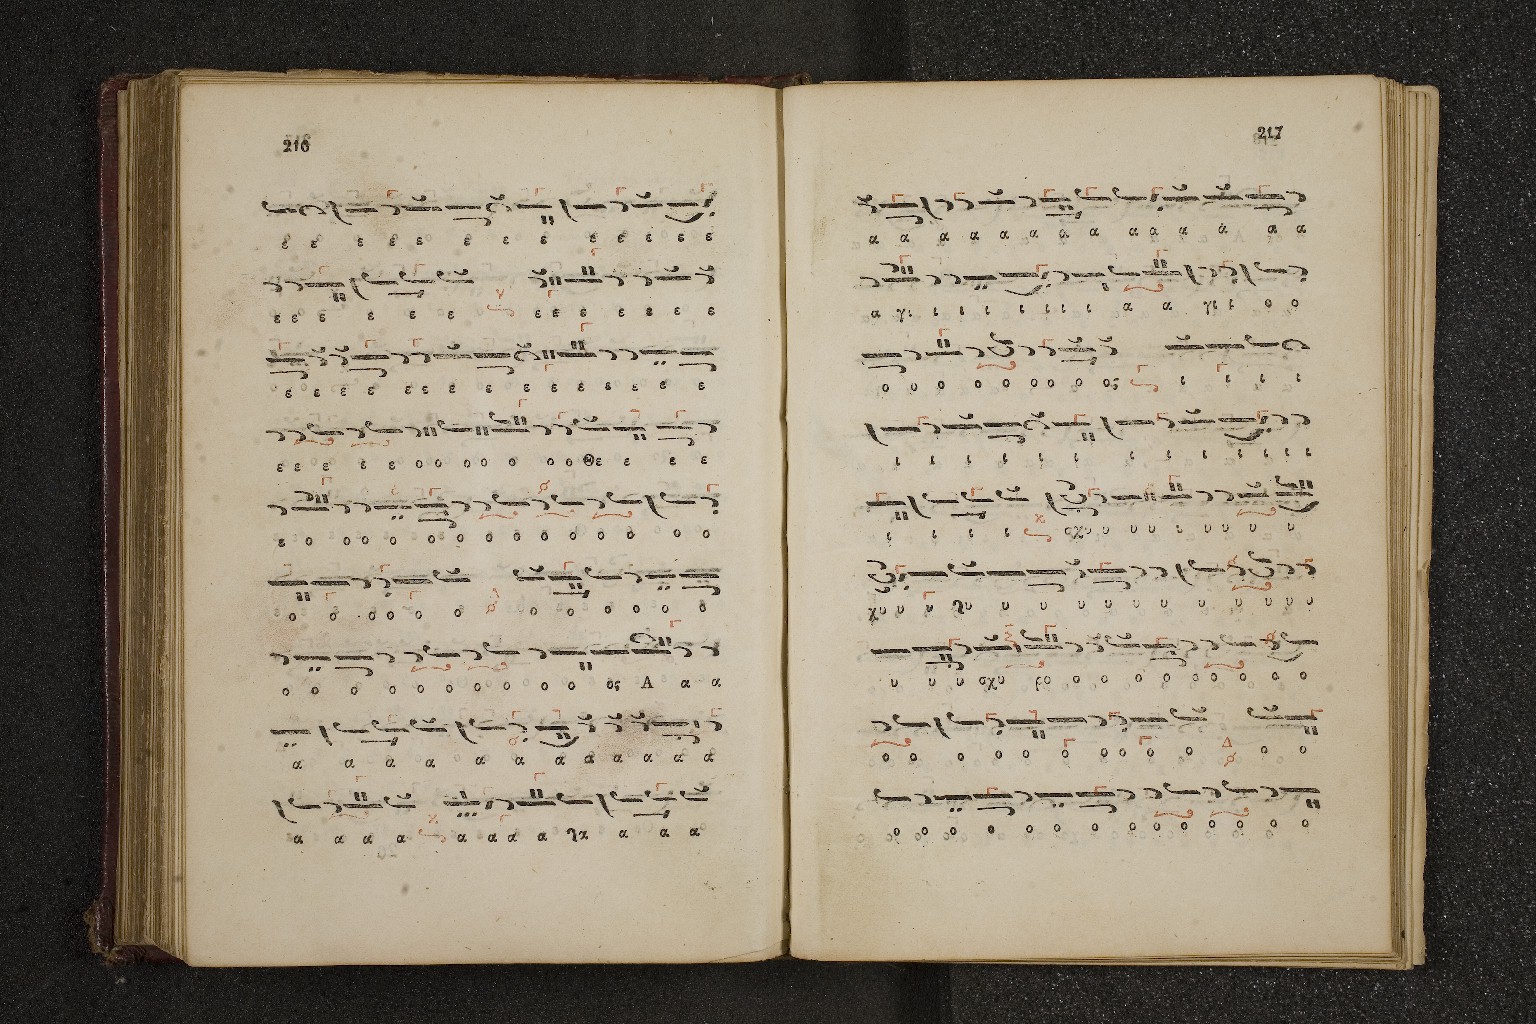 216
ε ε ε ε ε ε ε ε ε ε ε ε ε
ε ε ε ε ε ε ε ε ε ε ε ε ε
ε ε ε ε ε ε ε ε ε ε ε ε ε ε ε
ε ε ε ε ε ο ο ο ο ο ο ο Θε ε ε ε
ε ο ο ο ο ο ο ο ο ο ο ο ο ο ο
ο ο ο ο ο ο ο ο ο ο ο ο ο
ο ο ο ο ο ο ο ο ο ο ο ος Α α α
α α α α α α α α α α α α
α α α α α α α α λα α α α
217
α α α α α α α α α α α α α α α
α γι ι ι ι ι ι ι ι α α γι ι ο ο
ο ο ο ο ο ο ο ο ο ος ι ι ι ι
ι ι ι ι ι ι ι ι ι ι ι ι
ι ι ι ι ι σχυ υ υ υ ι υ υ υ υ
χυ υ υ λυ υ υ υ υ υ υ υ υ υ υ
υ υ υ σχυ ρο ο ο ο ο ο ο ο ο ο ο
ο ο ο ο ο ο ο ο ο ο ο ο
ο ο ο ο ο ο ο ο ο ο ο ο ο ο ο